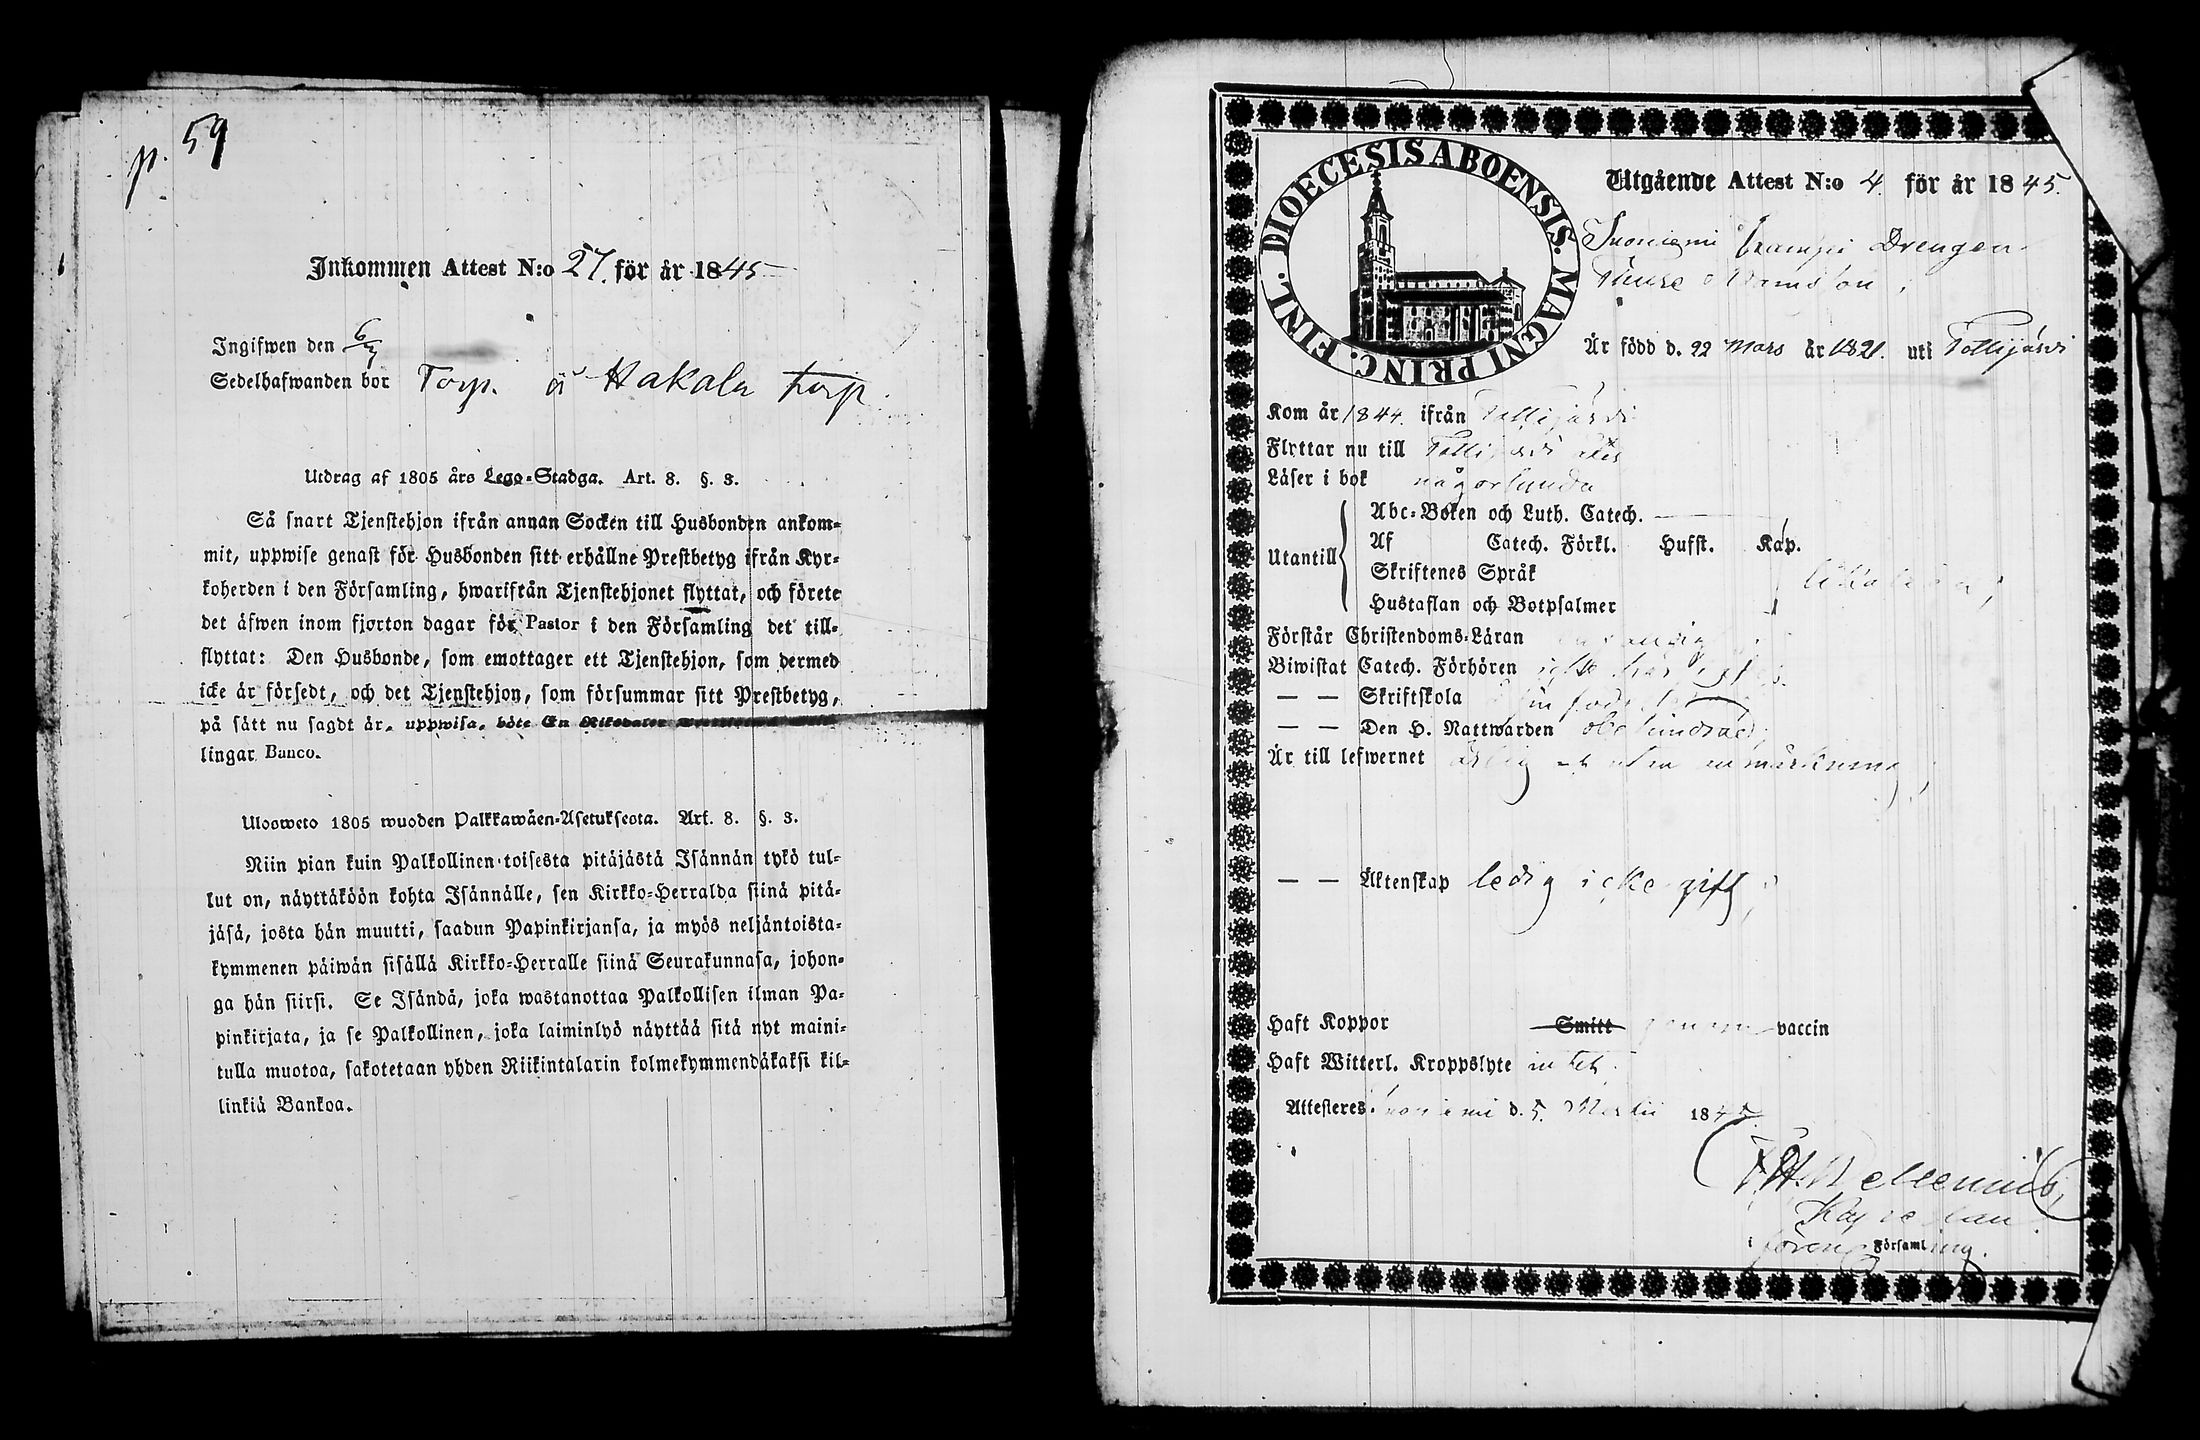 p. 59
Inkommen Attest N:o 27. för år 1845
Ingifwen den 6/7
Sedelhafwanden bor Torp. å Hakala torp
Utdrag af 1805 års Lego-Stadga. Art. 8. §. 3.
Så snart Tjenstehjon ifrån annan Socken till Husbonden ankom-
mit, uppwise genast för Husbonden sitt erhållne Prestbetyg ifrån Kyr-
koherden i den Församling, hwarifrån Tjenstehjonet flyttat, och förete
det äfwen inom fjorton dagar för Pastor i den Församling det till-
flyttat: Den Husbonde, som emottager ett Tjenstehjon, som dermed
icke är försedt, och det Tjenstehjon, som försummar sitt Prestbetyg,
på sätt nu sagdt är, uppwisa, böte En Riksdaler
lingar Banco.
Ulosweto 1805 wuoden Palkkawäen-Asetuksesta. Art. 8. §. 3.
Niin pian kuin Palkollinen toisesta pitäjästä Isännän tykö tul-
lut on, näyttäköön kohta Isännälle, sen Kirkko-Herralda siinä pitä-
jäsä, josta hän muutti, saadun Papinkirjansa, ja myös neljäntoista-
kymmenen päiwän sisällä Kirkko-Herralle siinä Seurakunnasa, johon-
ga hän siirsi. Se Isändä, joka wastanottaa Palkollisen ilman Pa-
pinkirjata, ja se Palkollinen, joka laiminlyö näyttää sitä nyt maini-
tulla muotoa, sakotetaan yhden Riikintalarin kolmekymmendäkaksi kil-
linkiä Bankoa.
DIOECESIS ABOENSIS. MAGNI PRINC. FINL.
Utgående Attest N:o 4. för år 1845.
Suoniemi Drengen
Thure Adamsson,
Är född d. 22 Mars år 1821. uti Tottijärvi
Kom år 1844. ifrån Tottijärvi
Flyttar nu till Tottijärvi åter
Läser i bok någorlunda
Utantill
Abc-Boken och Luth. Catech.
Af Catech. Förkl. Husst. Kap.
Skriftenes Språk
Hustaflan och Botpsalmer
Förstår Christendoms-Läran
Biwistat Catech. Förhören icke här
— — Skriftskola
— — Den H. Nattwarden obehindrad;
Är till lefwernet ärlig och utan anmärkning,
— — Äktenskap ledig icke gift;
Haft Koppor Smitt genom vaccin
Haft Witterl. Kroppslyte intet.
Attesteres Suoniemi d. 5 Martii 1845
Kapellan
i Församling.